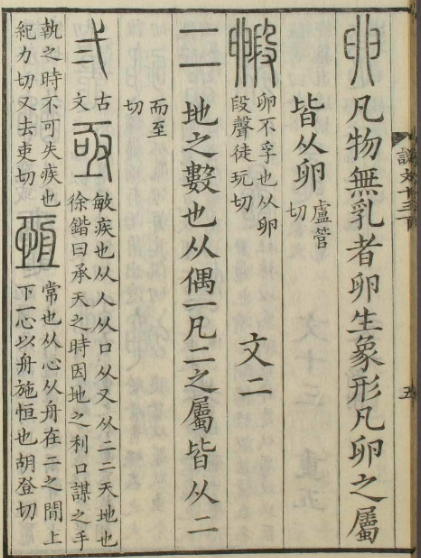 卵凡物無乳者卵生象形凡卵之屬
皆从卵盧管切
毈卵不孚也从卵段聲徒玩切
文二
二地之數也从偶一凡二之屬皆从二
而至切
弍古文
亟敏疾也从人从口从又从二二天地也
徐鍇曰承天之時因地之利口謀之手
執之時不可失疾也
紀力切又去吏切
恆常也从心从舟在二之間上
下一心以舟施恒也胡登切